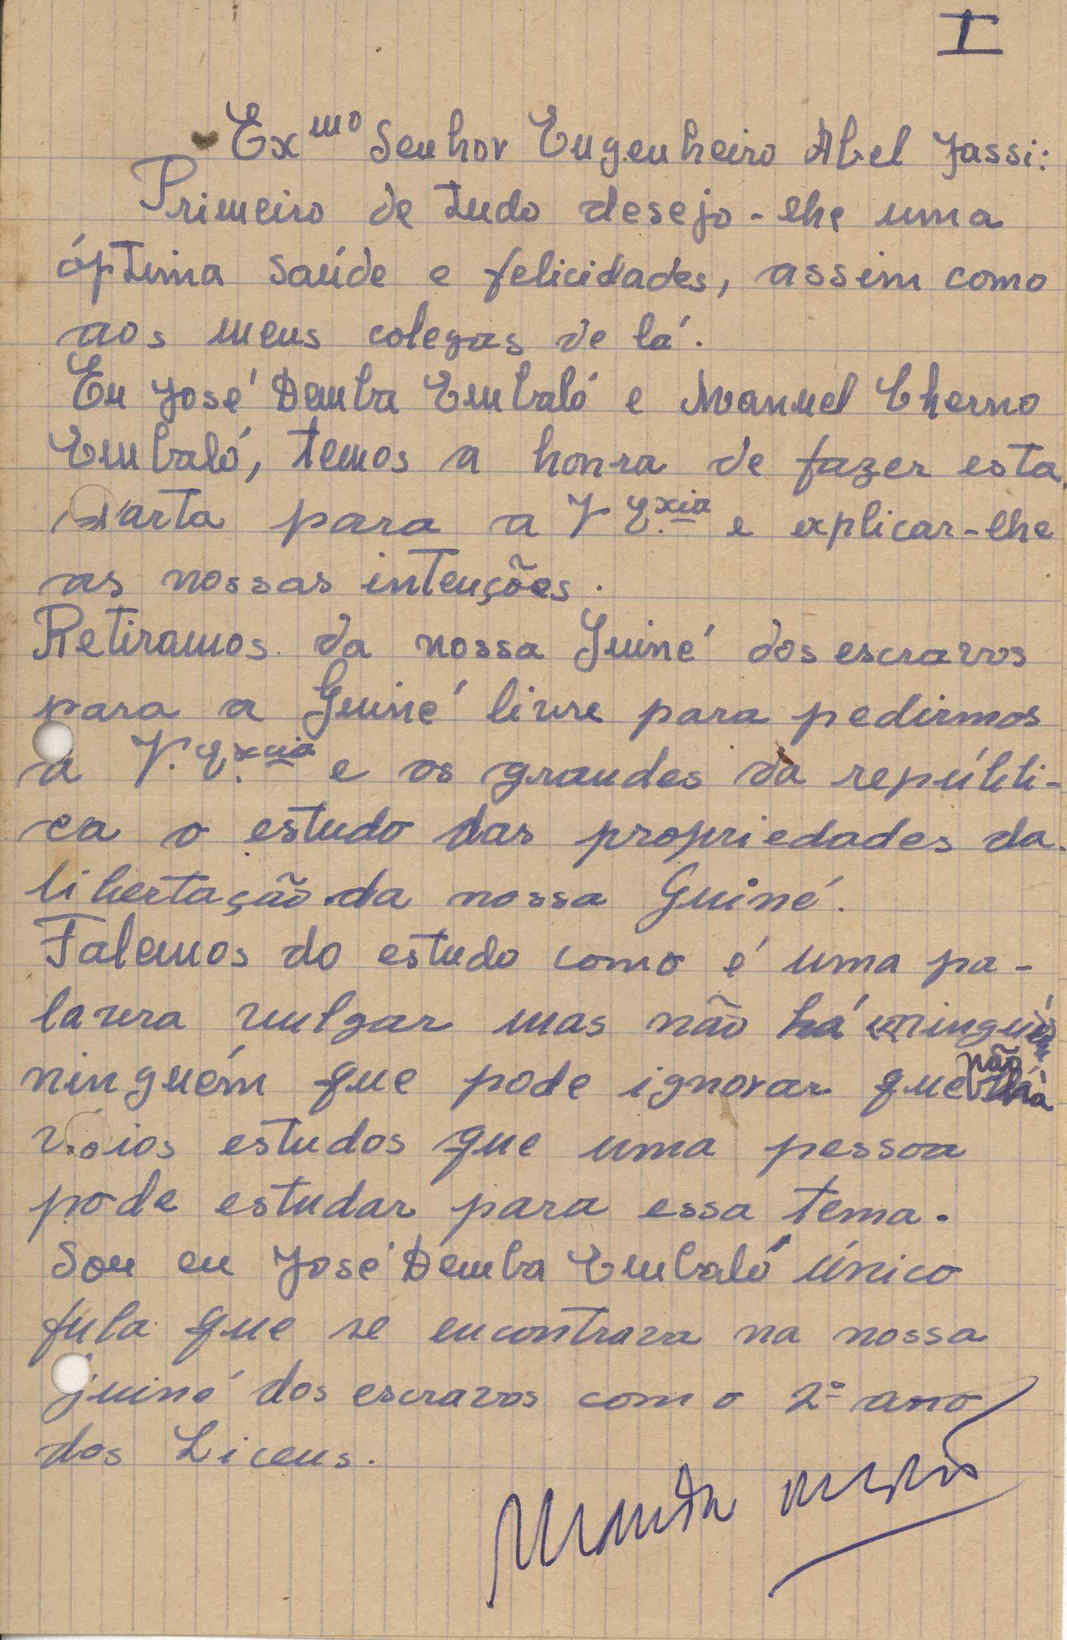 I
Exmo Senhor Engenheiro Abel Jassi:
Primeiro de tudo desejo-lhe uma
óptima saúde e felicidades, assim como
aos meus colegas de lá.
Eu José Demba Embaló e Manuel Cherno
Embaló, temos a honra de fazer esta
carta para a V Exia e explicar-lhe
as nossas intenções.
Retiramos da nossa Guiné dos escravos
para a Guiné livre para pedirmos
a V. Excia e os grandes da repúbli-
ca o estudo das propriedades da
libertação da nossa Guiné.
Falemos do estudo como é uma pa-
lavra vulgar mas não há ninguém
ninguém que pode ignorar que não há
vários estudos que uma pessoa
pode estudar para essa tema.
Sou eu José Demba Embaló único
fula que se encontrava na nossa
Guiné dos escravos com o 2º ano
dos Liceus.